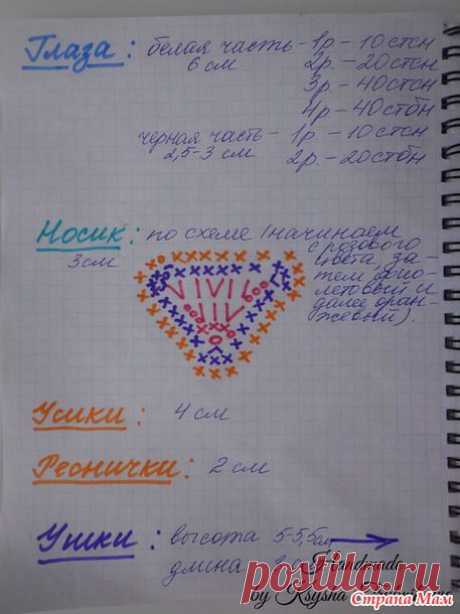 Глаза: белая часть - 1р. - 10стсн
6 см 2р. - 20стсн
3р - 40стсн
4р - 40стбн
черная часть - 1р. - 10стсн
2,5-3 см 2р. - 20стбн
Носик: по схеме (начинаем
3см с розового
цвета, за-
тем фио-
летовый и
далее оран-
жевый).
Усики: 4 см
Реснички: 2 см
Ушки: высота 5-5,5см
длина
Handmade
by Ksysha
Страна Мам
postila.ru